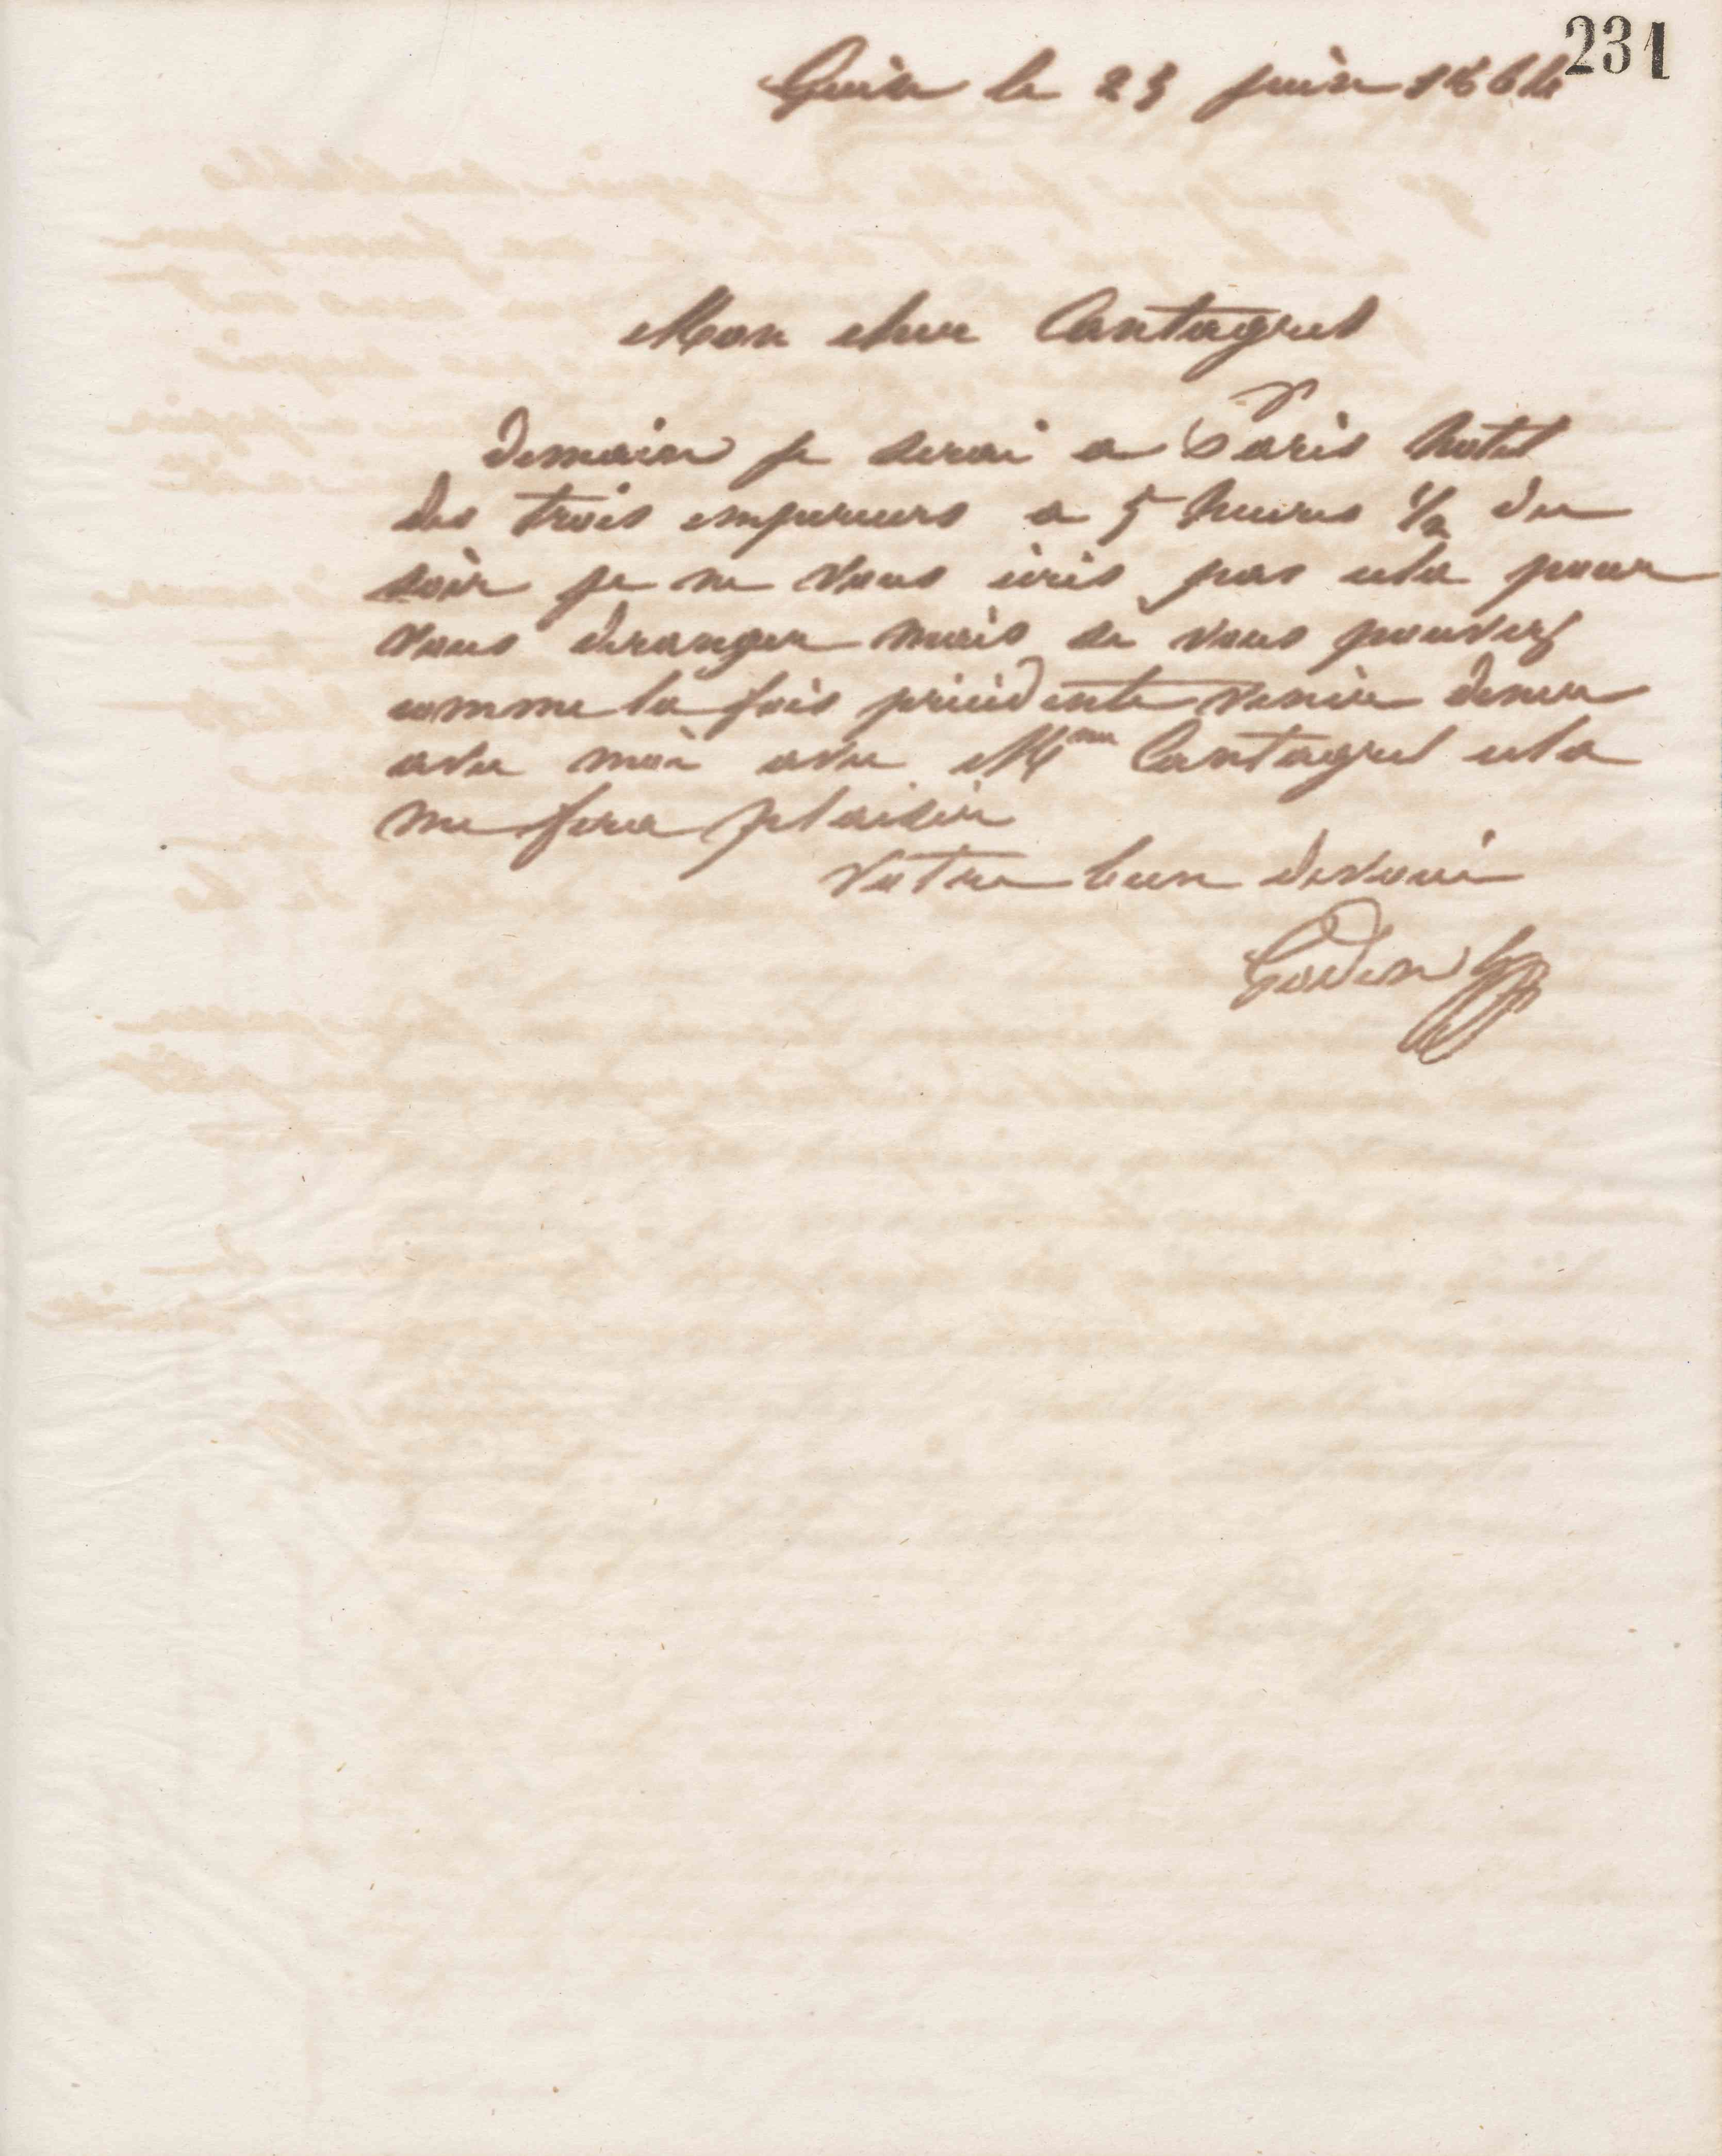 231
Guise le 23 juin 1864
Mon cher Cantagrel
Demain je serai a Paris hotel
des trois empereurs a 5 heures 1/2 du
soir je ne vous écris pas cela pour
vous deranger mais si vous pouvez
comme la fois précédente venir diner
avec moi avec Mme Cantagrel cela
me fera plaisir
Votre bien dévoué
Godin